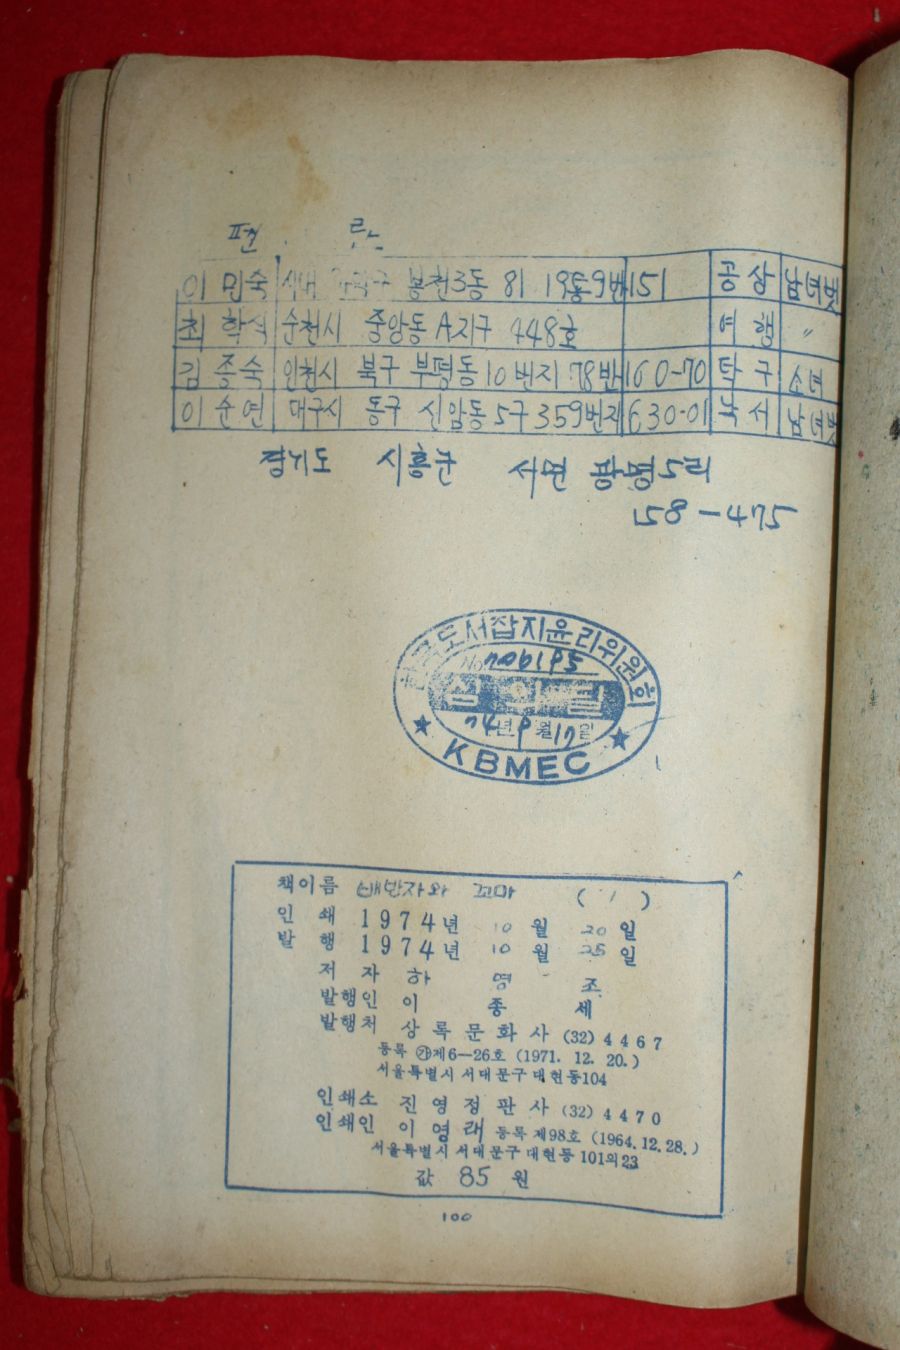 편 란
이 민숙 시내 관악구 봉천3동 81 19통9반 151 공상 남녀벗
최 학식 순천시 중앙동 A지구 448호 여행 〃
김 종숙 인천시 북구 부평동 10번지 78반 160-70 탁구 소녀
이 순연 대구시 동구 신암동 5구 359번지 630-01 독서 남녀벗
경기도 시흥군 서면 광명5리
158-475
한국도서잡지윤리위원회
No 706195
심의필
74년 9월 17일
★ KBMEC ★
책이름 배반자와 꼬마 (1)
인쇄 1974년 10월 20일
발행 1974년 10월 25일
저자 하영조
발행인 이종세
발행처 상록문화사 (32) 4467
등록 ㉮제6—26호 (1971. 12. 20.)
서울특별시 서대문구 대현동104
인쇄소 진영정판사 (32) 4470
인쇄인 이영래 등록 제98호 (1964. 12. 28.)
서울특별시 서대문구 대현동 101의23
값 85 원
100